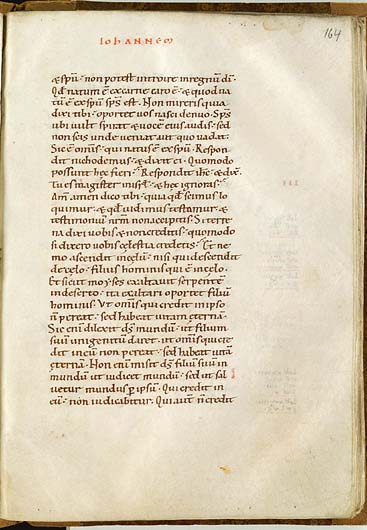 164
IOHANNEM
& spu · non potest introire in regnum di ·
Qd natum e ex carne caro e · & quod na
tu e ex spu sps est · Non mireris quia
dixi tibi · oportet vos nasci denuo · Sps
ubi uult spirat · & uoce eius audis · sed
non scis unde ueniat aut quo uadat ·
Sic e omis · qui natus e ex spu · Respon
dit nichodemus · & dixit ei · Quomodo
possunt hec fieri · Respondit ihc · & dix ·
Tu es magister in isrl · & hec ignoras ·
Am amen dico tibi · quia qd scimus lo
quimur · & qd uidimus testamur · &
testimoniu nrm non accipitis · Si terre
na dixi uobis & non creditis · quomodo
si dixero uobis celestia credetis · Et ne
mo ascendit in celu · nisi qui descendit
de celo · filius hominis qui e in celo ·
Et sicut moyses exaltauit serpente
in deserto · ita exaltari oportet filiu
hominis · Ut omis qui credit in ipso
n pereat · sed habeat uitam eterna ·
Sic eni dilexit ds mundu · ut filium
suu unigenitu daret · ut omis qui cre
dit in eu non pereat · sed habeat uita
eterna · Non eni misit ds filiu suu in
mundu ut iudicet mundu · sed ut sal
uetur mundus p ipsu · Qui credit in
eu · non iudicabitur · Qui aut n credit